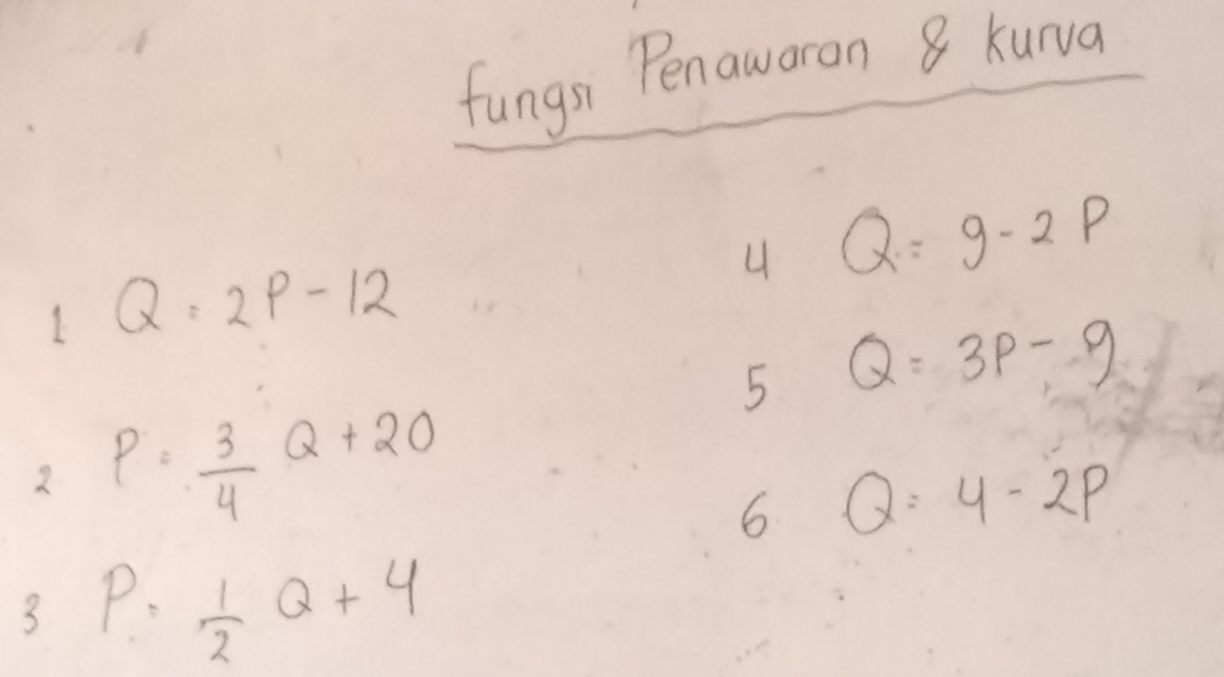 fungsi Penawaran & kurva
1 Q = 2P - 12
2 P = 3/4 Q + 20
3 P = 1/2 Q + 4
4 Q = 9 - 2P
5 Q = 3P - 9
6 Q = 4 - 2P